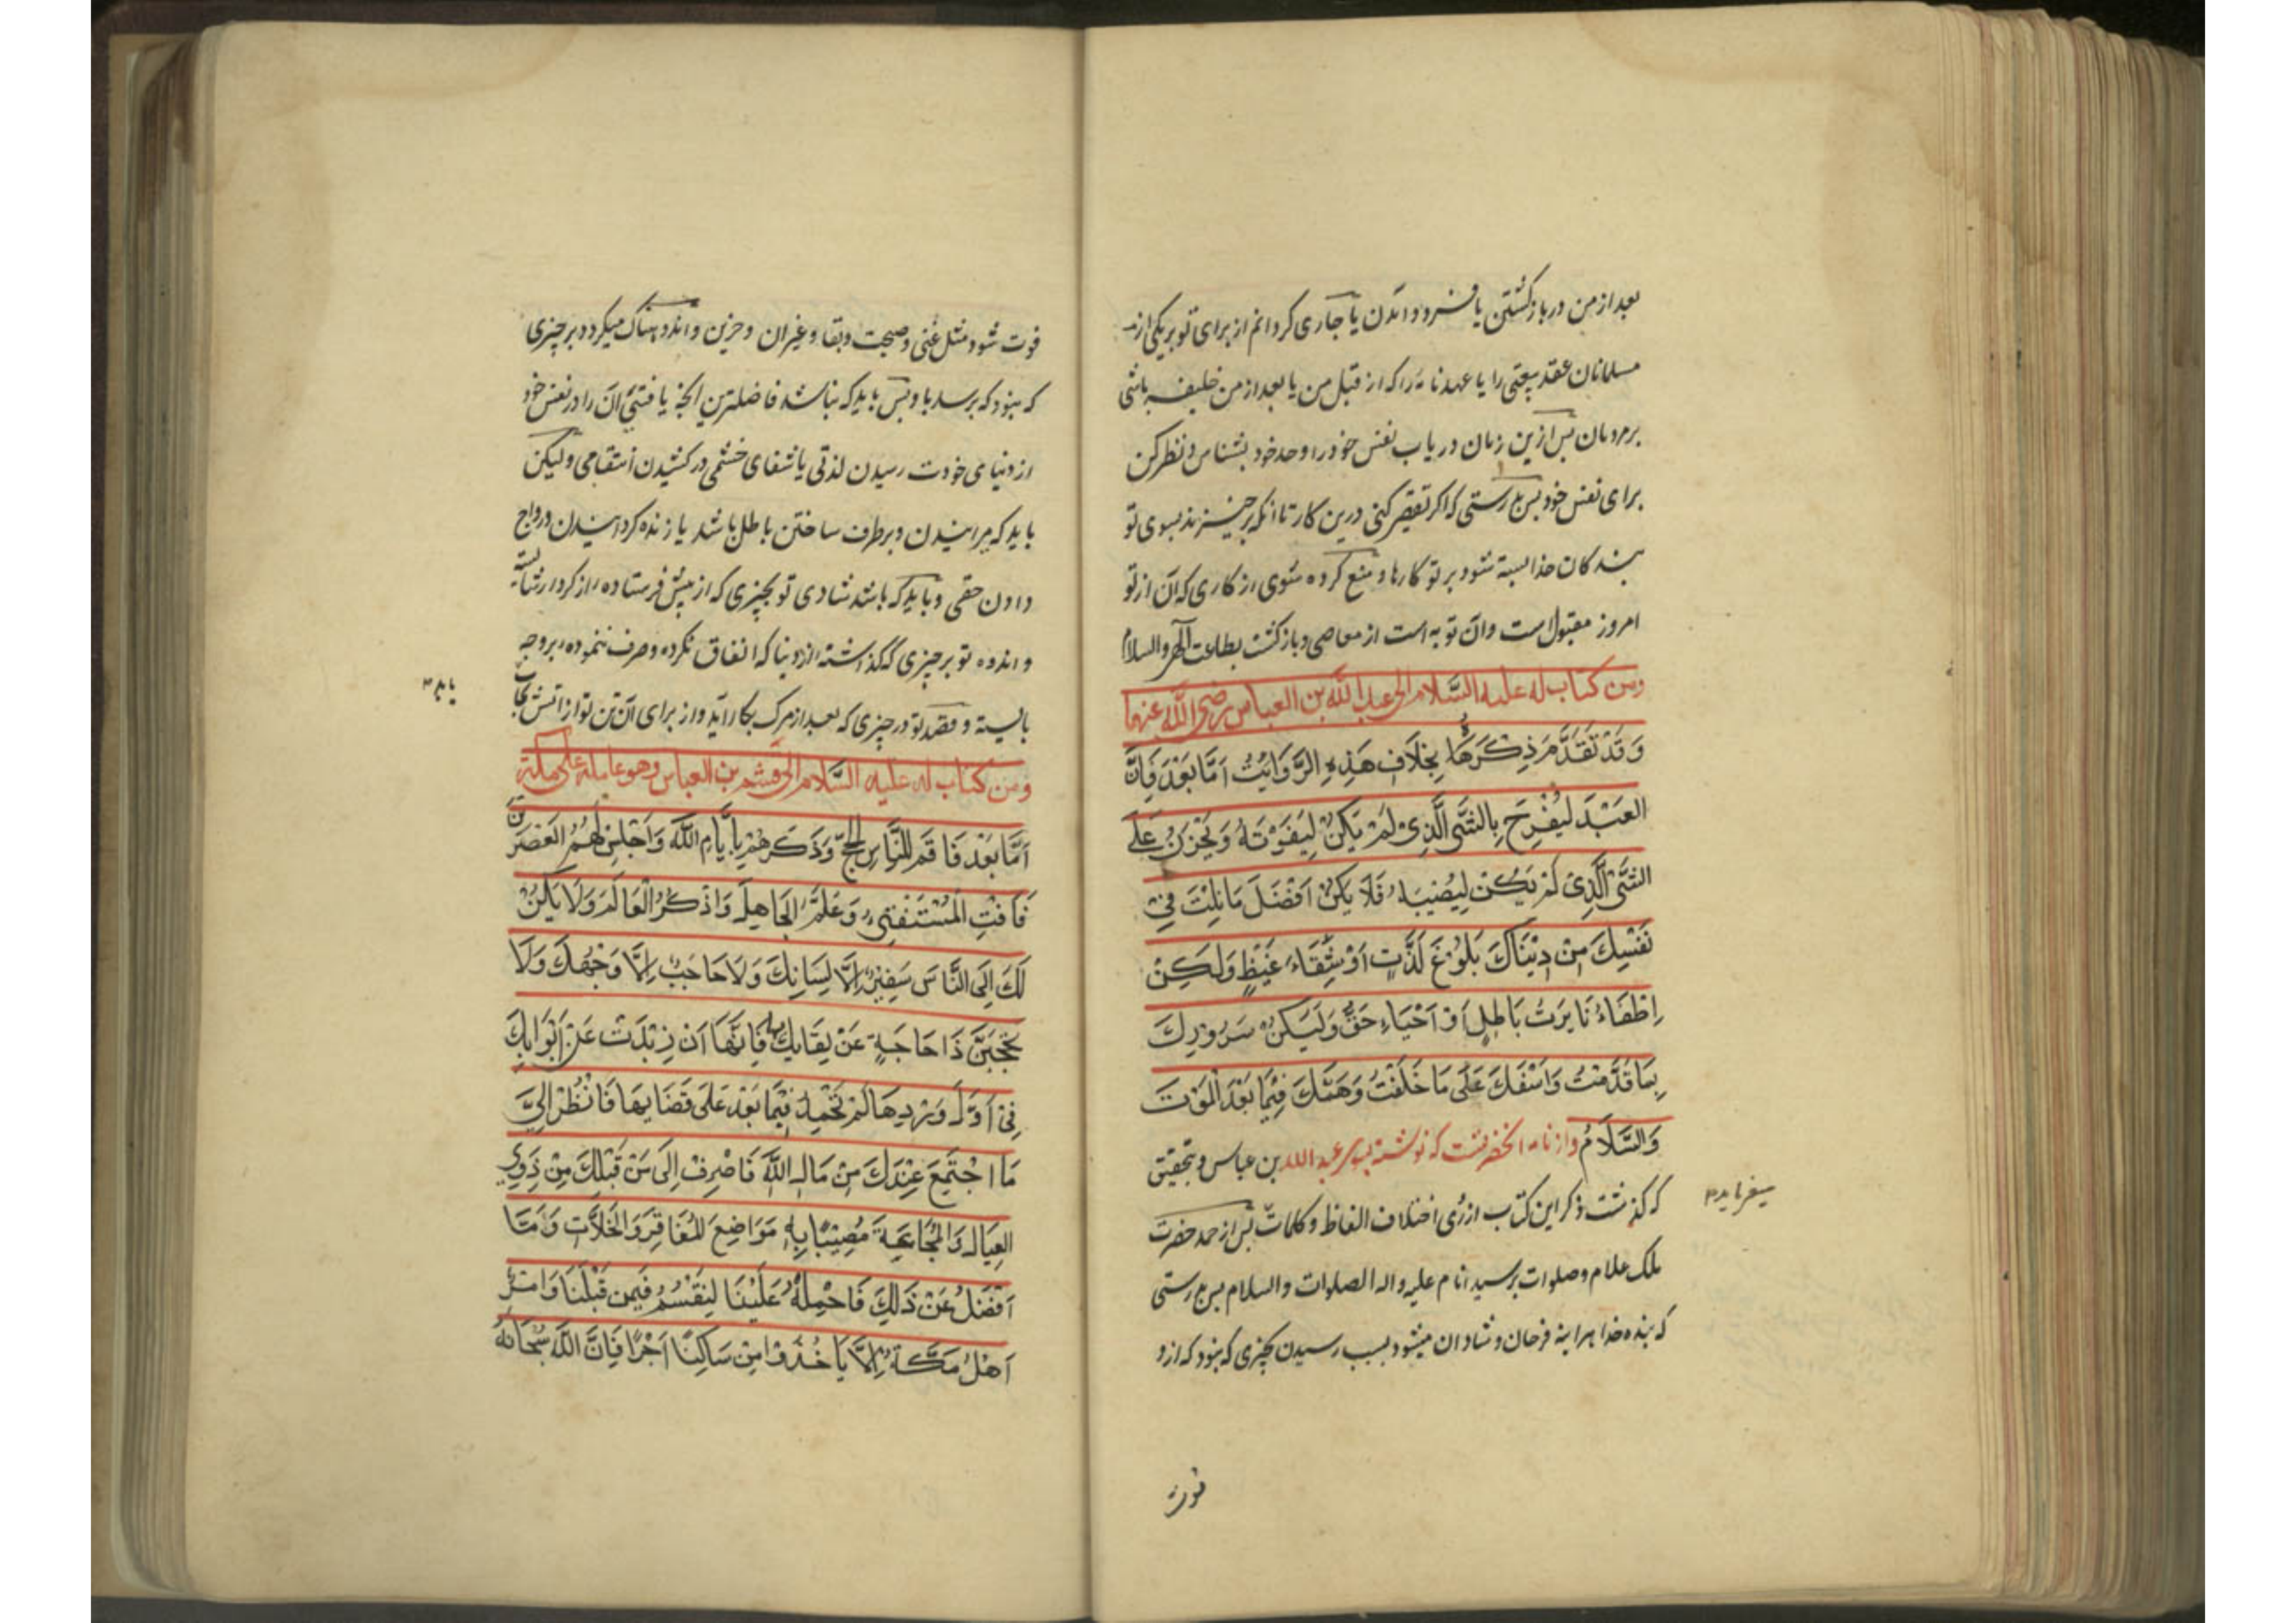 بعد از من در باز کشتن یا فرود آمدن یا جاری کردانم از برای تو بر یکی از
مسلمانان عقد بیعتی را یا عهدنامه را که از قبل من یا بعد از من خلیفه باشی
بر مردمان پس ازین زمان دریاب نفس خود را و حد خود بشناس و نظر کن
برای نفس خود پس بدرستی که اکر تقصیر کنی درین کار تا آنکه برخیزند بسوی تو
بندکان خدا بسته شود بر تو کارها و منع کرده شوی از کاری که آن از تو
امروز مقبول است و آن توبه است از معاصی و بازکشت بطاعت الهی والسلام
ومن کتاب له علیه السَّلام الی عبد الله بن العباس رضی الله عنهما
وَقَدْ تَقَدَّمَ ذِکَرَهَا بِخِلَافِ هَذِهِ الرَّوَایَتُ اَمَّا بَعْدَ فَاِنَّ
العَبْدَ لَیُفْرِحَ بِالشَّیِ الَّذِیْ لَمْ یَکُنْ لِیَفَوْتَهُ وَیَحْزَنُ عَلَی
الشَّیِ الَّذِی لَمْ یَکُنْ لِیُصِیْبَهُ فَلَا یَکُنْ اَفْضَلَ مَا نِلْتَ فِیْ
نَفْسِكَ مِنْ دِنْیَاكَ بَلُوْغَ لَذَّتٍ اَوْ شِفَاءُ غَیْظٍ وَلَکِنْ
اِطْفَاءُ نَایِرَتُ بَاطِلٍ اَوْ اَحْیَاءِ حَقٍّ وَلَیَکُنْ سَرُوْرِكَ
بِمَا قَدَّمْتُ وَاسْفَكَ عَلَی مَا خَلَفْتُ وَهَمَّكَ فِیْمَا بَعْدَ الْمَوْتَ
وَالسَّلَامُ و از نامه آنحضرتست که نوشته بسوی عبد الله بن عباس و بتحقیق
که کذشت ذکر این کتاب از روی اختلاف الفاظ و کلمات پس از حمد حضرت
میفرماید
ملک علام و صلوات بر سید انام علیه و اله الصلوات والسلام پس بدرستی
که بنده خدا هراینه فرحان و شادان میشود بسبب رسیدن بچیزی که نبود که ازو
فوت
فوت شود مثل غنی و صحت و بقا و غیر ان و حزین و اندوهناک میکردد بر چیزی
که نبود که برسد باو پس باید که نباشد فاضلترین آنچه یافتهٔ آن را در نفس خود
از دنیای خودت رسیدن لذتی یا شفای خشمی در کشیدن انتقامی ولیکن
باید که میرانیدن و برطرف ساختن باطل باشد یا زنده کردانیدن و رواج
دادن حقی و باید که باشد شادی تو بچیزی که از پیش فرستادهٔ از کردار شایسته
و اندوه تو بر چیزی که کذاشتهٔ از دنیا که انفاق نکرده و صرف ننمودهٔ بر وجه
باید
بایسته و قصد تو در چیزی که بعد از مرک بکار آید و از برای آن تن تو از آتش نجات
ومن کتاب له علیه السَّلام الی قثم بن العباس وهو عامله علی مکة
اَمَّا بَعْدَ فَاقِمَ للنَّاسِ الحَجَّ وَذَکِّرَهُمْ بِاَیَّامِ اللَّه وَاجْلِسْ لَهُمُ العَصْرَیْنَ
فَافْتِ الْمُسْتَفْتِیْ وَعَلِّمَ الجَاهِلَ وَاذْکُرُ الْعَالِمَ وَلَا یَکُنْ
لَكَ اِلَی النَّاسَ سَفِیْرٌ اِلَّا لِسَانِكَ وَلَا حَاجَبٌ اِلَّا وَجْهَكَ وَلَا
تَحْجُبَنَّ ذَا حَاجَةٍ عَنْ لِقَایِكَ بها فَاِنَّهَا اَنْ زِیْدَتْ عَنْ اَبْوَابِكَ
فِیْ اَوَّلَ وِرْدِهَا لَمْ تَحْمَدْ فِیْمَا بَعْدَ عَلَی قَضَایِهَا فَانْظُرْ اِلَی
مَا اجْتَمَعَ عِنْدَكَ مِنْ مَالِ اللَّه فَاصْرِفْ اِلَی مَنْ قَبْلِكَ مِنْ ذَوِی
العِیَالِ وَالْمُجَاعَةَ مُصِیْبًا بِهِ مَوَاضِعَ الْمُفَاقِرَ وَالخَلَّاتِ وَمَا
اَفْضَلُ عَنْ ذَلِكَ فَاحْمِلْهُ عَلَیْنَا لِنَقْسِمُهُ فَیْمِنْ قَبْلَنَا وَامُرْ
اَهْلُ مَکَّةَ اَلَّا یَاخُذُوْا مِنْ سَاکِنًا اَجْرًا فَاِنَّ اللَّه سُبْحَانَهُ